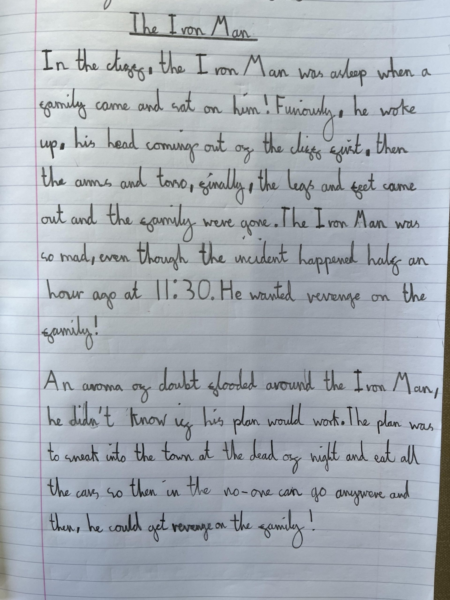 The Iron Man
In the cliffs, the Iron Man was asleep when a
family came and sat on him! Furiously, he woke
up, his head coming out of the cliff first, then
the arms and torso, finally, the legs and feet came
out and the family were gone. The Iron Man was
so mad, even though the incident happened half an
hour ago at 11:30. He wanted revenge on the
family!
An aroma of doubt flooded around the Iron Man,
he didn't know if his plan would work. The plan was
to sneak into the town at the dead of night and eat all
the cars, so then in the no-one can go anywere and
then, he could get revenge on the family!